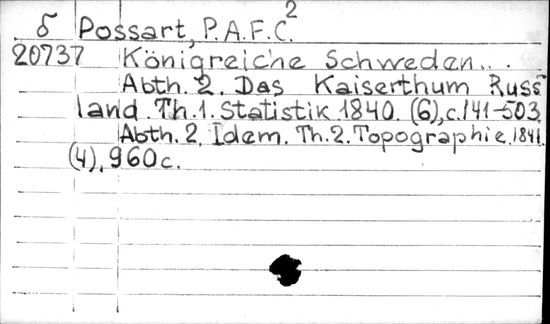 δ Possart, P.A.F.C. 2
20737 Königreiche Schweden...
Abth. 2. Das Kaiserthum Russ-
land. Th. 1. Statistik. 1840. (6), c. 141-503.
Abth. 2. Idem. Th. 2. Topographie. 1841.
(4), 960 c.